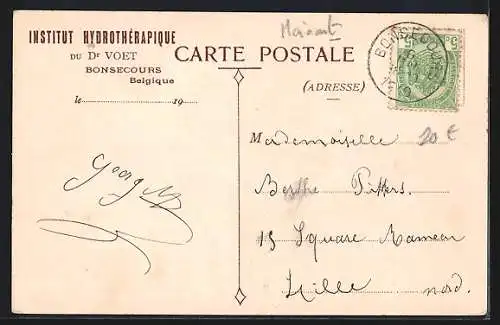 INSTITUT HYDROTHÉRAPIQUE
DU Dr VOET
BONSECOURS
Belgique
le 19
CARTE POSTALE
(ADRESSE)
BONSECOURS
5 5
20 €
Mademoiselle
Berthe
15 Square Rameau
Lille
Nord.